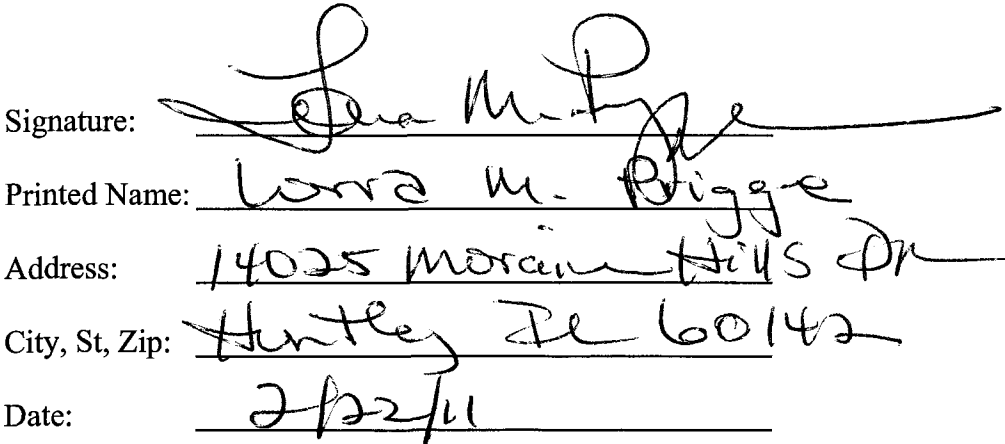 Signature:
Printed Name: Lorra M.
Address: 14025 Moraine Hills Dr
City, St, Zip: Huntley IL 60142
Date: 2/22/11